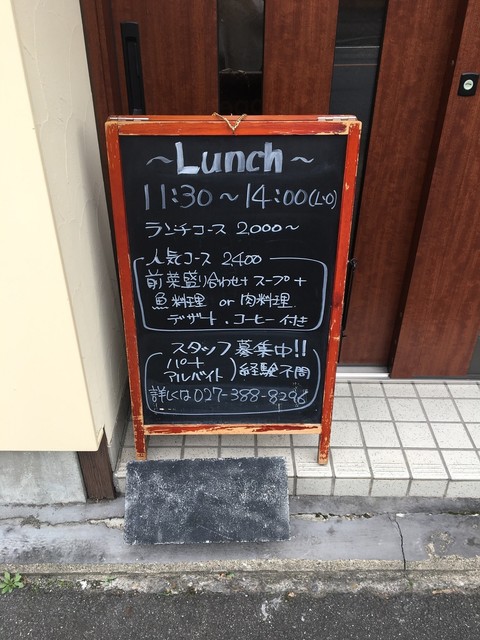 ～Lunch～
11:30～14:00(L.O)
ランチコース 2,000～
人気コース 2,400
前菜盛り合わせ スープ+
魚料理 or 肉料理
デザート、コーヒー付き
スタッフ募集中!!
パート
アルバイト ) 経験不問
詳しくは027-388-8296